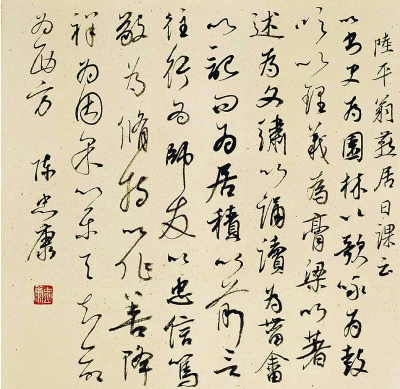 陸平翁燕居日課云
以書史為園林以歌咏為鼓
吹以理義為膏粱以著
述為文繡以誦讀為菑畬
以記問為居積以前言
往行為師友以忠信篤
敬為脩持以作善降
祥為因果以樂天知命
為西方 陳忠康